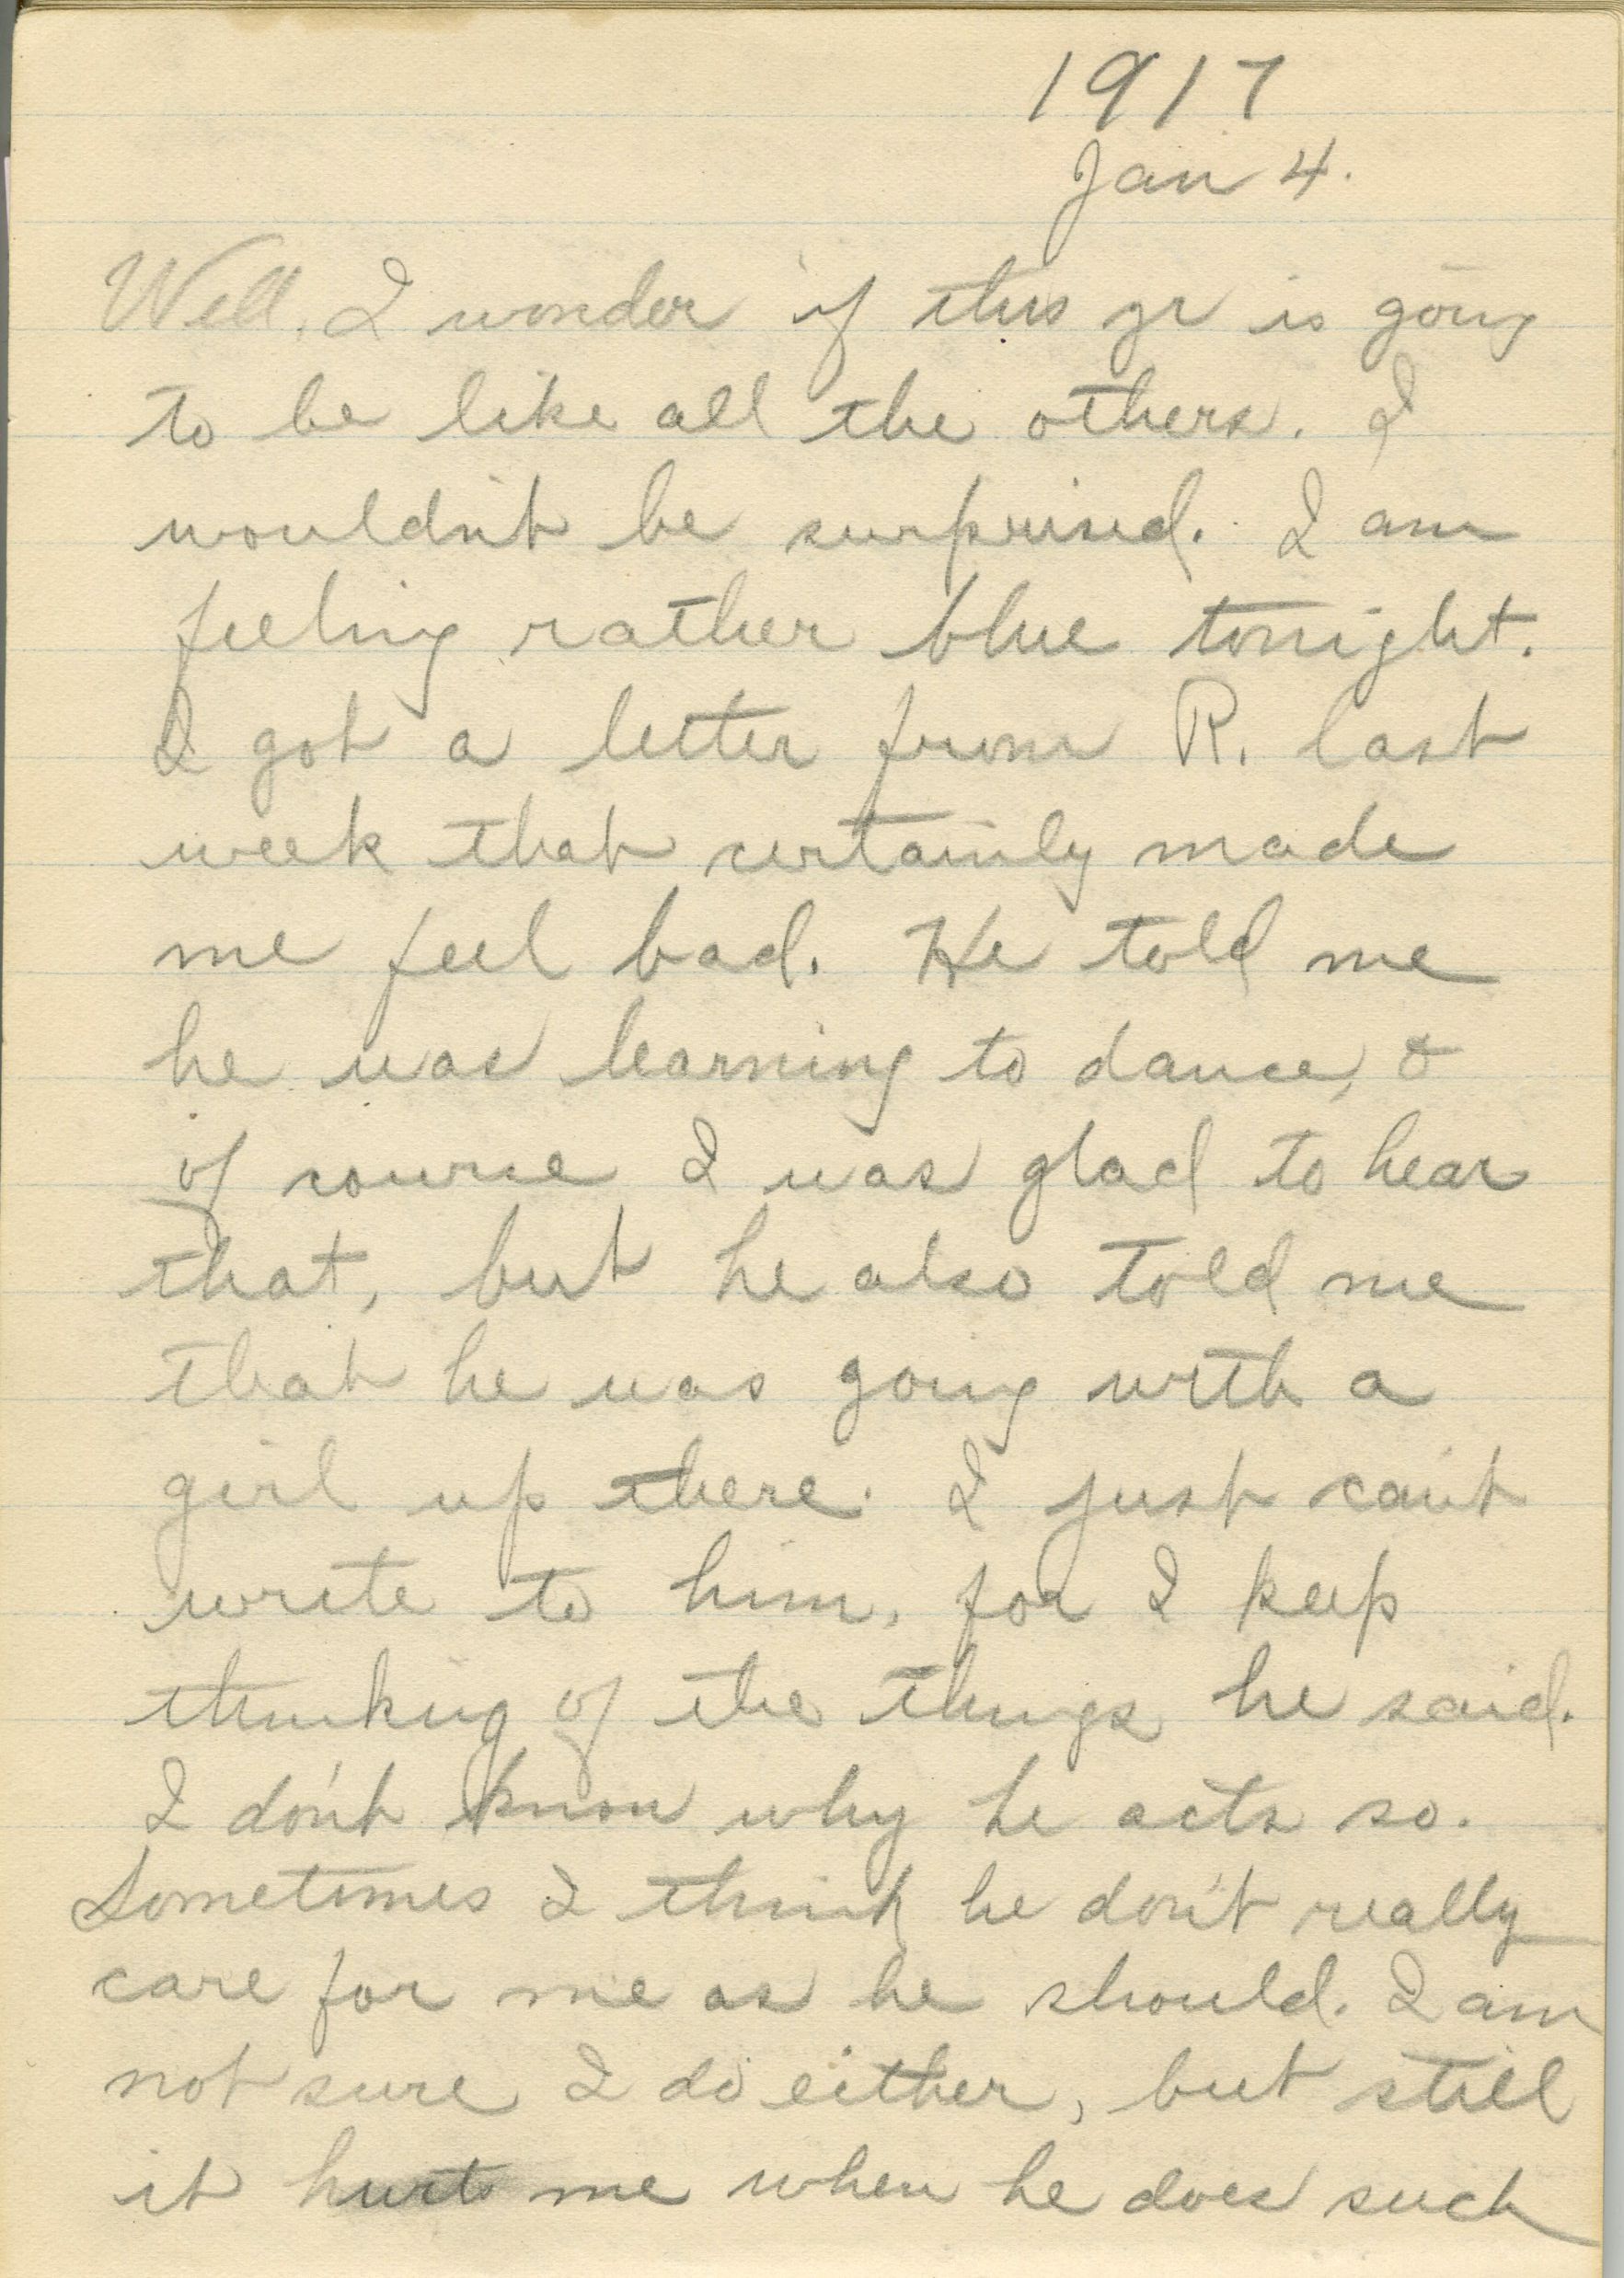 1917
Jan 4.
Well, I wonder if this yr is going
to be like all the others. I
wouldn't be surprised. I am
feeling rather blue tonight.
I got a letter from R. last
week that certainly made
me feel bad. He told me
he was learning to dance, &
of course I was glad to hear
that, but he also told me
that he was going with a
girl up there. I just can't
write to him, for I keep
thinking of the things he said.
I don't know why he acts so.
Sometimes I think he don't really
care for me as he should. I am
not sure I do either, but still
it hurt me when he does such